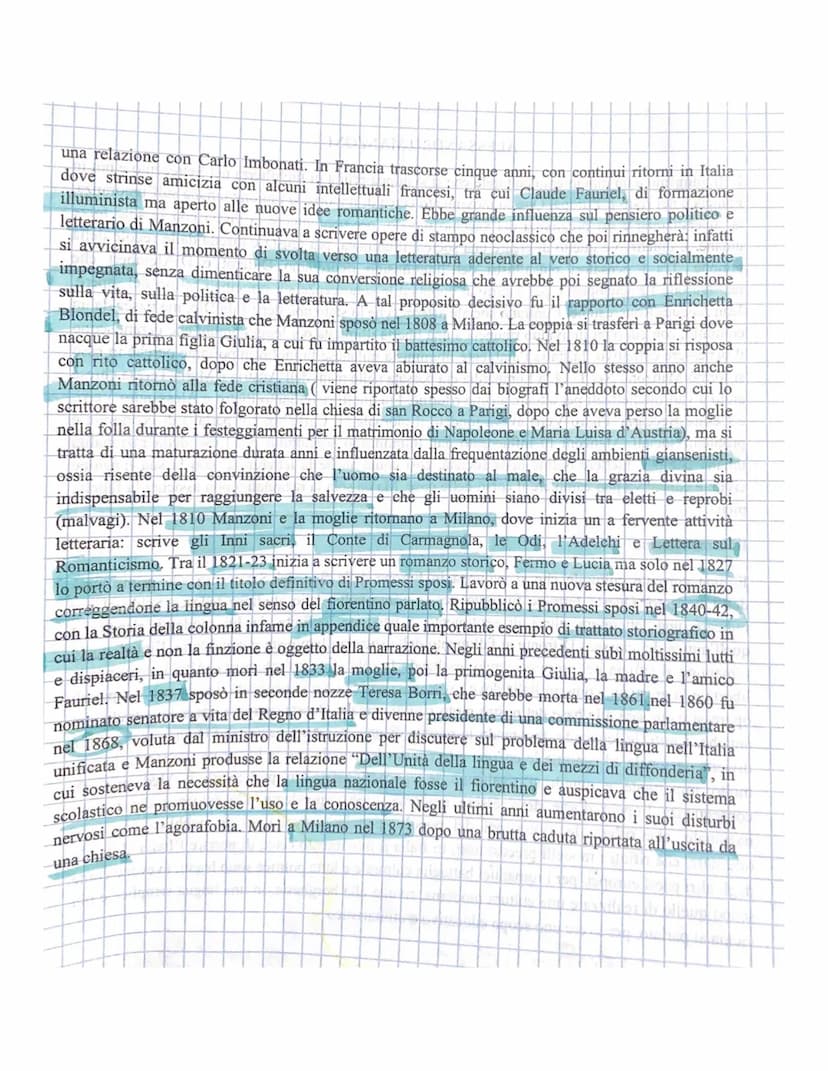 una relazione con Carlo Imbonati. In Francia trascorse cinque anni, con continui ritorni in Italia
dove strinse amicizia con alcuni intellettuali francesi, tra cui Claude Fauriel, di formazione
illuminista ma aperto alle nuove idee romantiche. Ebbe grande influenza sul pensiero politico e
letterario di Manzoni. Continuava a scrivere opere di stampo neoclassico che poi rinnegherà: infatti
si avvicinava il momento di svolta verso una letteratura aderente al vero storico e socialmente
impegnata, senza dimenticare la sua conversione religiosa che avrebbe poi segnato la riflessione
sulla vita, sulla politica e la letteratura. A tal proposito decisivo fu il rapporto con Enrichetta
Blondel, di fede calvinista che Manzoni sposò nel 1808 a Milano. La coppia si trasferì a Parigi dove
nacque la prima figlia Giulia, a cui fu impartito il battesimo cattolico. Nel 1810 la coppia si risposa
con rito cattolico, dopo che Enrichetta aveva abiurato al calvinismo. Nello stesso anno anche
Manzoni ritornò alla fede cristiana ( viene riportato spesso dai biografi l’aneddoto secondo cui lo
scrittore sarebbe stato folgorato nella chiesa di san Rocco a Parigi, dopo che aveva perso la moglie
nella folla durante i festeggiamenti per il matrimonio di Napoleone e Maria Luisa d’Austria), ma si
tratta di una maturazione durata anni e influenzata dalla frequentazione degli ambienti giansenisti,
ossia risente della convinzione che l’uomo sia destinato al male, che la grazia divina sia
indispensabile per raggiungere la salvezza e che gli uomini siano divisi tra eletti e reprobi
(malvagi). Nel 1810 Manzoni e la moglie ritornano a Milano, dove inizia un a fervente attività
letteraria: scrive gli Inni sacri, il Conte di Carmagnola, le Odi, l’Adelchi e Lettera sul
Romanticismo. Tra il 1821-23 inizia a scrivere un romanzo storico, Fermo e Lucia ma solo nel 1827
lo portò a termine con il titolo definitivo di Promessi sposi. Lavorò a una nuova stesura del romanzo
correggendone la lingua nel senso del fiorentino parlato. Ripubblicò i Promessi sposi nel 1840-42,
con la Storia della colonna infame in appendice quale importante esempio di trattato storiografico in
cui la realtà e non la finzione è oggetto della narrazione. Negli anni precedenti subì moltissimi lutti
e dispiaceri, in quanto morì nel 1833 la moglie, poi la primogenita Giulia, la madre e l’amico
Fauriel. Nel 1837 sposò in seconde nozze Teresa Borri, che sarebbe morta nel 1861.nel 1860 fu
nominato senatore a vita del Regno d’Italia e divenne presidente di una commissione parlamentare
nel 1868, voluta dal ministro dell’istruzione per discutere sul problema della lingua nell’Italia
unificata e Manzoni produsse la relazione “Dell’Unità della lingua e dei mezzi di diffonderia”, in
cui sosteneva la necessità che la lingua nazionale fosse il fiorentino e auspicava che il sistema
scolastico ne promuovesse l’uso e la conoscenza. Negli ultimi anni aumentarono i suoi disturbi
nervosi come l’agorafobia. Morì a Milano nel 1873 dopo una brutta caduta riportata all’uscita da
una chiesa.